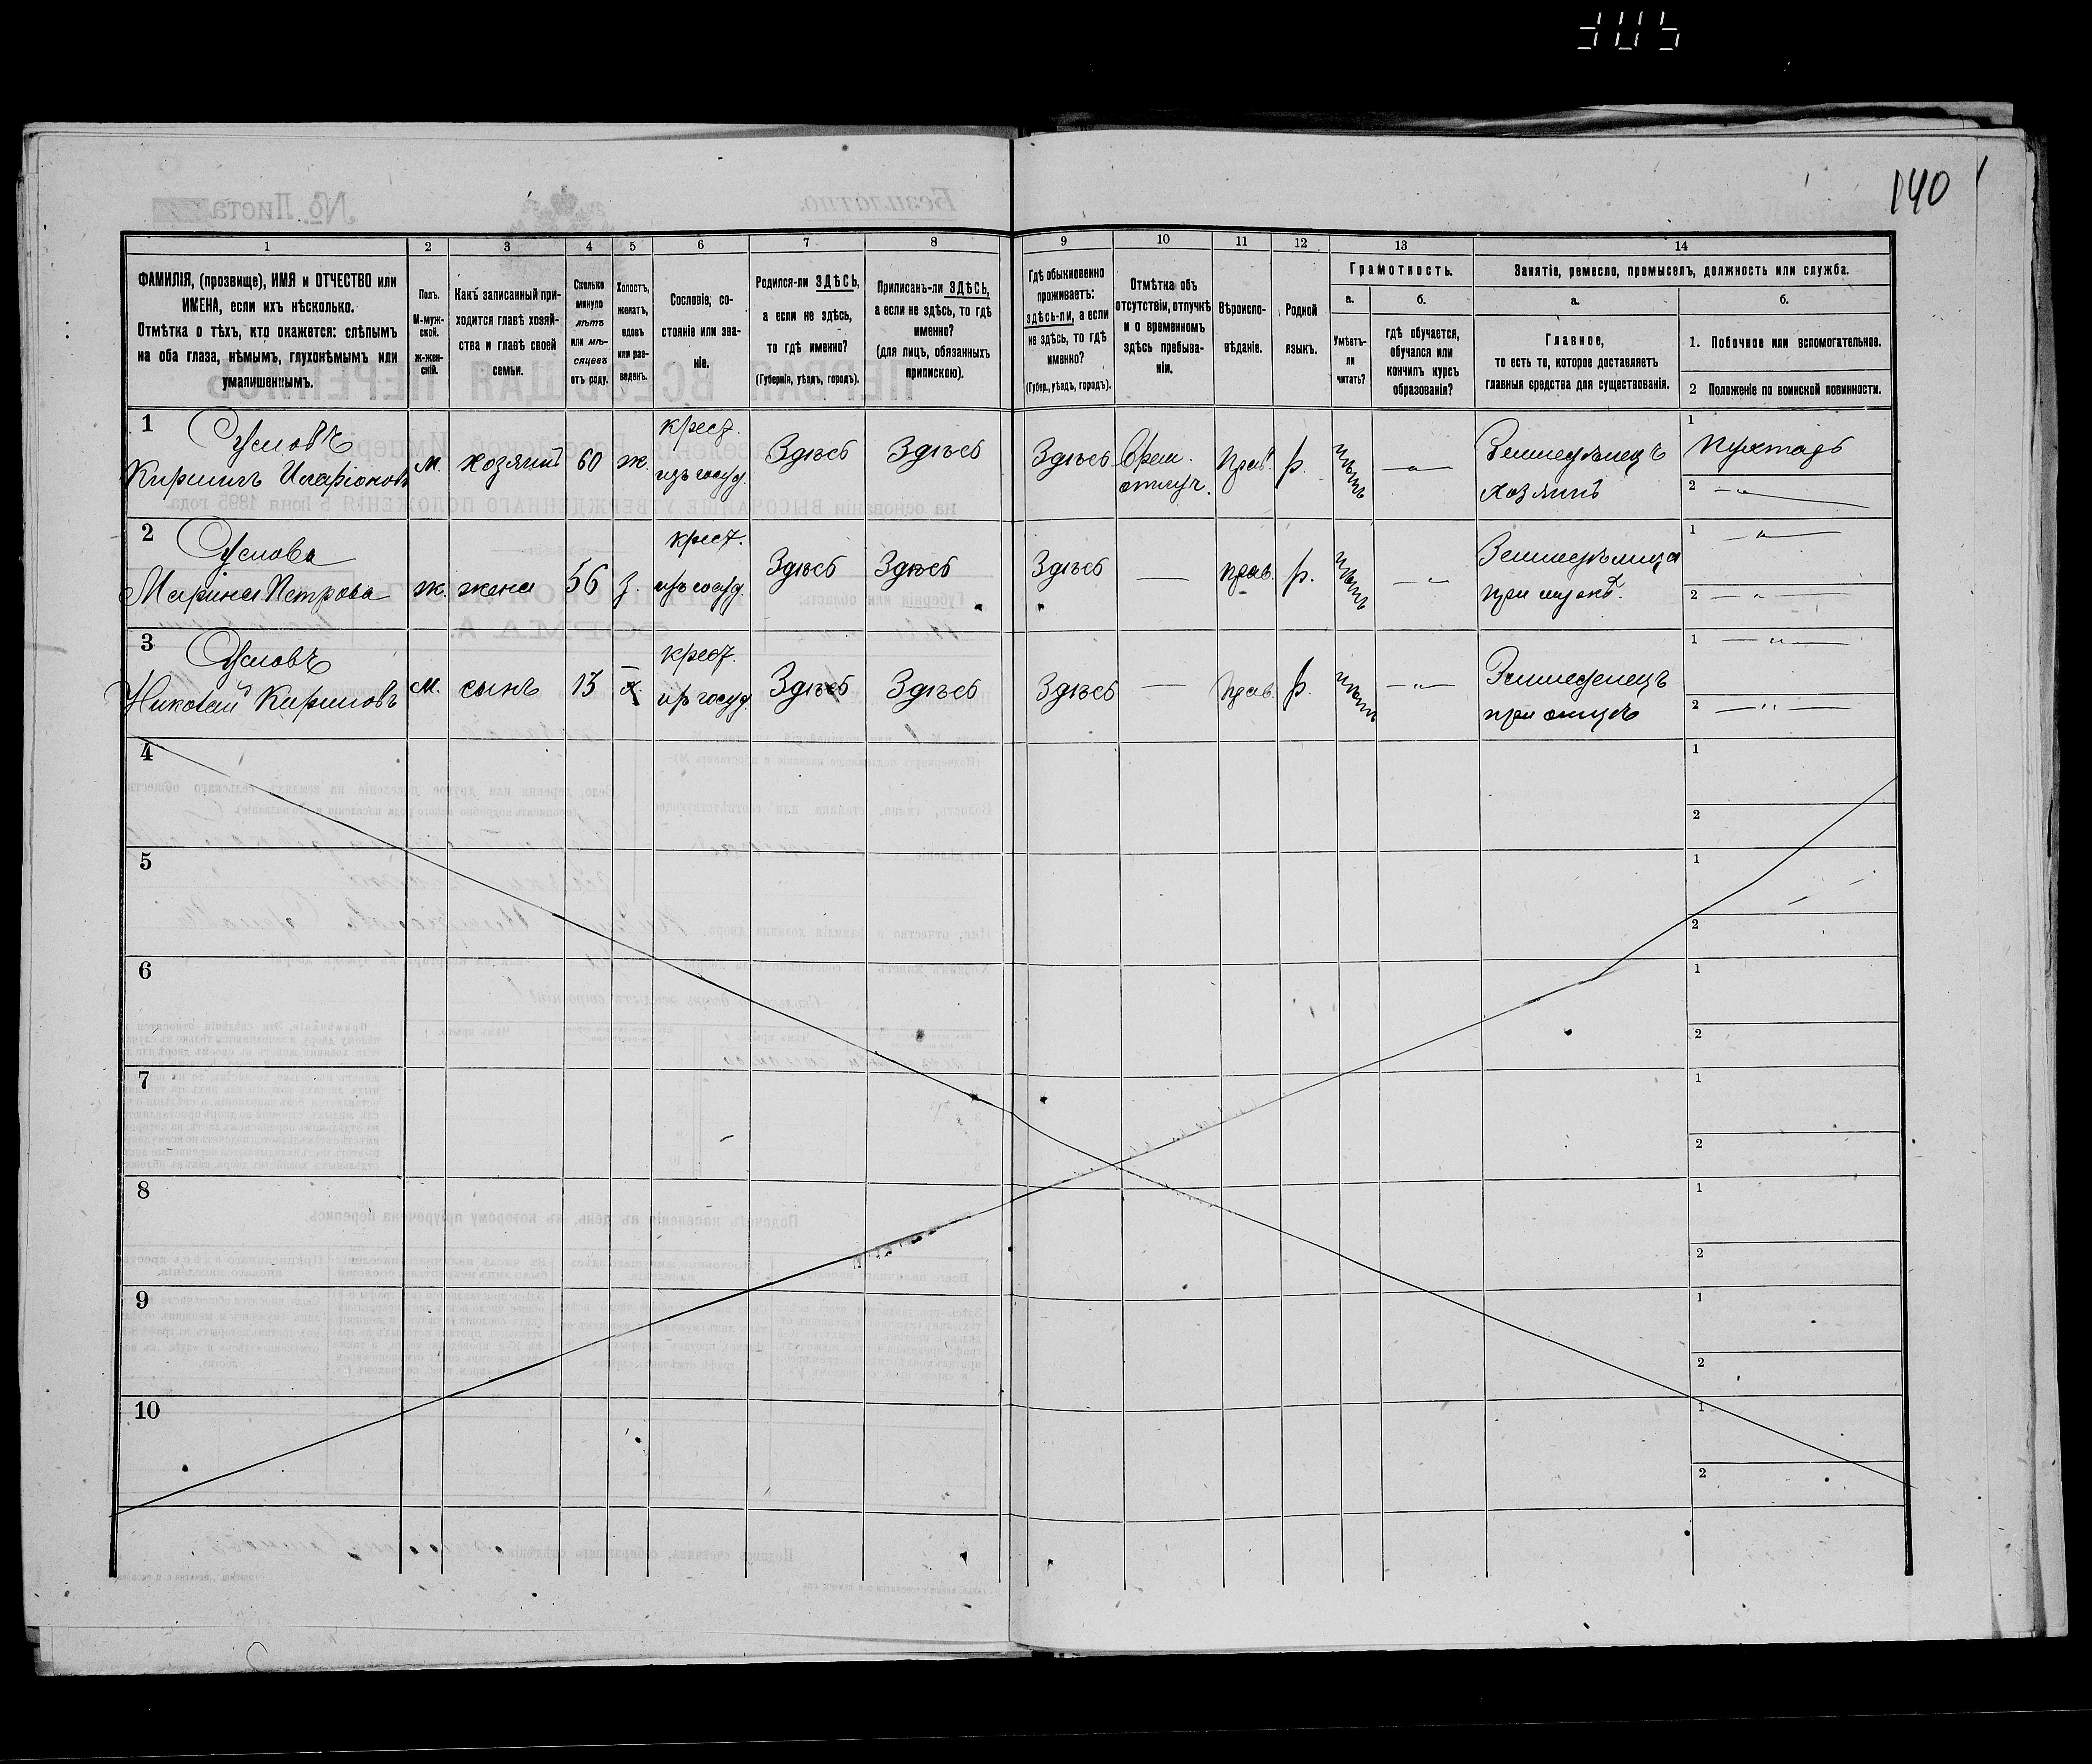 305
140
1 2 3 4 5 6 7 8 9 10 11 12 13 14
ФАМИЛІЯ, (прозвище), ИМЯ и ОТЧЕСТВО или
ИМЕНА, если ихъ нѣсколько.
Отмѣтка о тѣхъ, кто окажется: слѣпымъ
на оба глаза, нѣмымъ, глухонѣмымъ или
умалишеннымъ.
Полъ.
М-муж-
ской.
ж-жен-
скій.
Какъ записанный при-
ходится главѣ хозяй-
ства и главѣ своей
семьи.
Сколько
минуло
лѣтъ
или мѣ-
сяцевъ
отъ роду.
Холостъ,
женатъ,
вдовъ
или раз-
веденъ.
Сословіе, со-
стояніе или зва-
ніе.
Родился-ли ЗДѢСЬ,
а если не здѣсь,
то гдѣ именно?
(Губернія, уѣздъ, городъ).
Приписанъ-ли ЗДѢСЬ,
а если не здѣсь, то гдѣ
именно?
(для лицъ, обязанныхъ
припискою).
Гдѣ обыкновенно
проживаетъ:
здѣсь-ли, а если
не здѣсь, то гдѣ
именно?
(Губер., уѣздъ, городъ).
Отмѣтка объ
отсутствіи, отлучкѣ
и о временномъ
здѣсь пребыва-
ніи.
Вѣроиспо-
вѣданіе.
Родной
языкъ.
Грамотность.
а.
Умѣетъ-
ли
читать?
б.
гдѣ обучается,
обучался или
кончилъ курсъ
образованія?
Занятіе, ремесло, промыселъ, должность или служба.
а.
Главное,
то есть то, которое доставляетъ
главныя средства для существованія.
б.
1. Побочное или вспомогательное.
2 Положеніе по воинской повинности.
1
Кирилъ
м. хозяинъ 60 ж.
крест.
изъ госуд.
Здѣсь Здѣсь Здѣсь
Врем.
отлуч.
Прав. р. нѣтъ —„—
Земледѣлецъ
хозяинъ
1
2 —„—
2
Марина Петрова
ж. жена 56 з.
крест.
изъ госуд.
Здѣсь Здѣсь Здѣсь — прав. р. нѣтъ —„—
при мужѣ.
1 —„—
2 —„—
3
Николай Кириловъ
м. сынъ х.
крест.
изъ госуд.
Здѣсь Здѣсь Здѣсь — Прав. р. нѣтъ —„—
Земледелецъ
при отцѣ
1 —„—
2 —„—
4 1
2
5 1
2
6 1
2
7 1
2
8 1
2
9 1
2
10 1
2